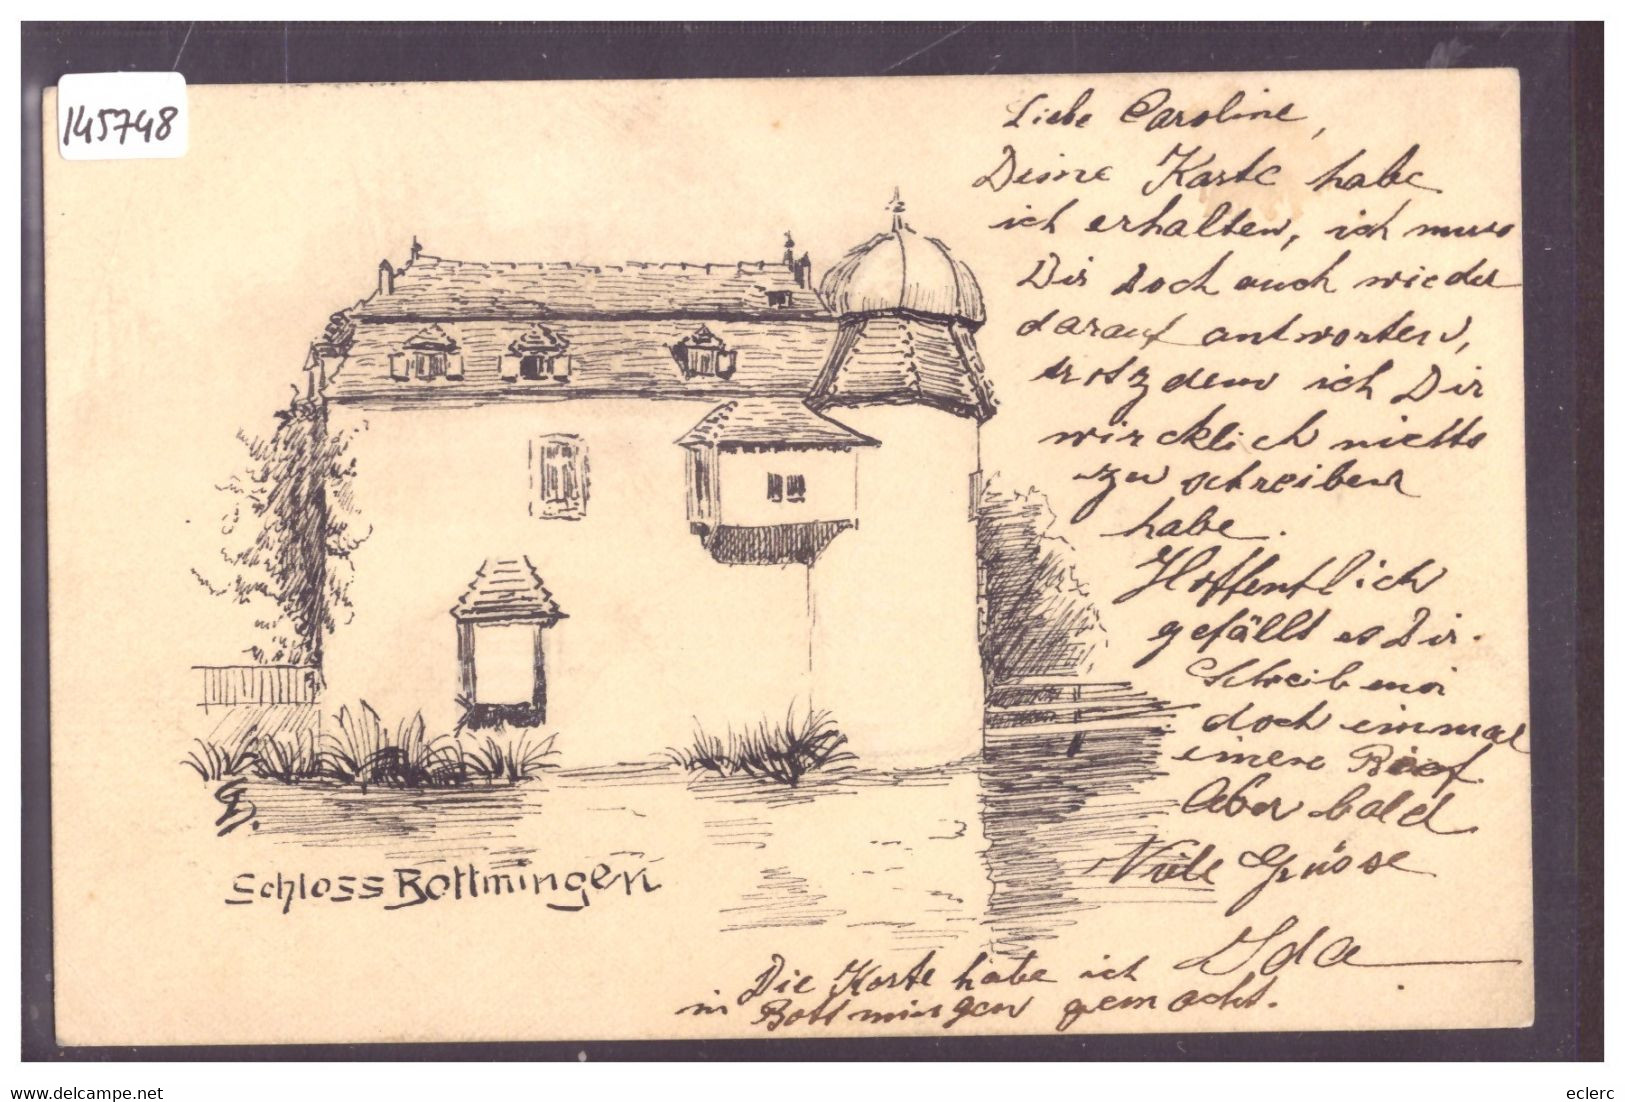 145748
Liebe Caroline,
Deine Karte habe
ich erhalten, ich muss
Dir doch auch wieder
darauf antworten,
trotzdem ich Dir
wircklich nichts
zu schreiben
habe.
Hoffentlich
gefällt es Dir.
Schreib mir
doch einmal
einen Brief.
Aber bald
Viele Grüsse
Ida
Die Karte habe ich
in Bottmingen gemacht.
Schloss Bottmingen
www.delcampe.net
eclerc